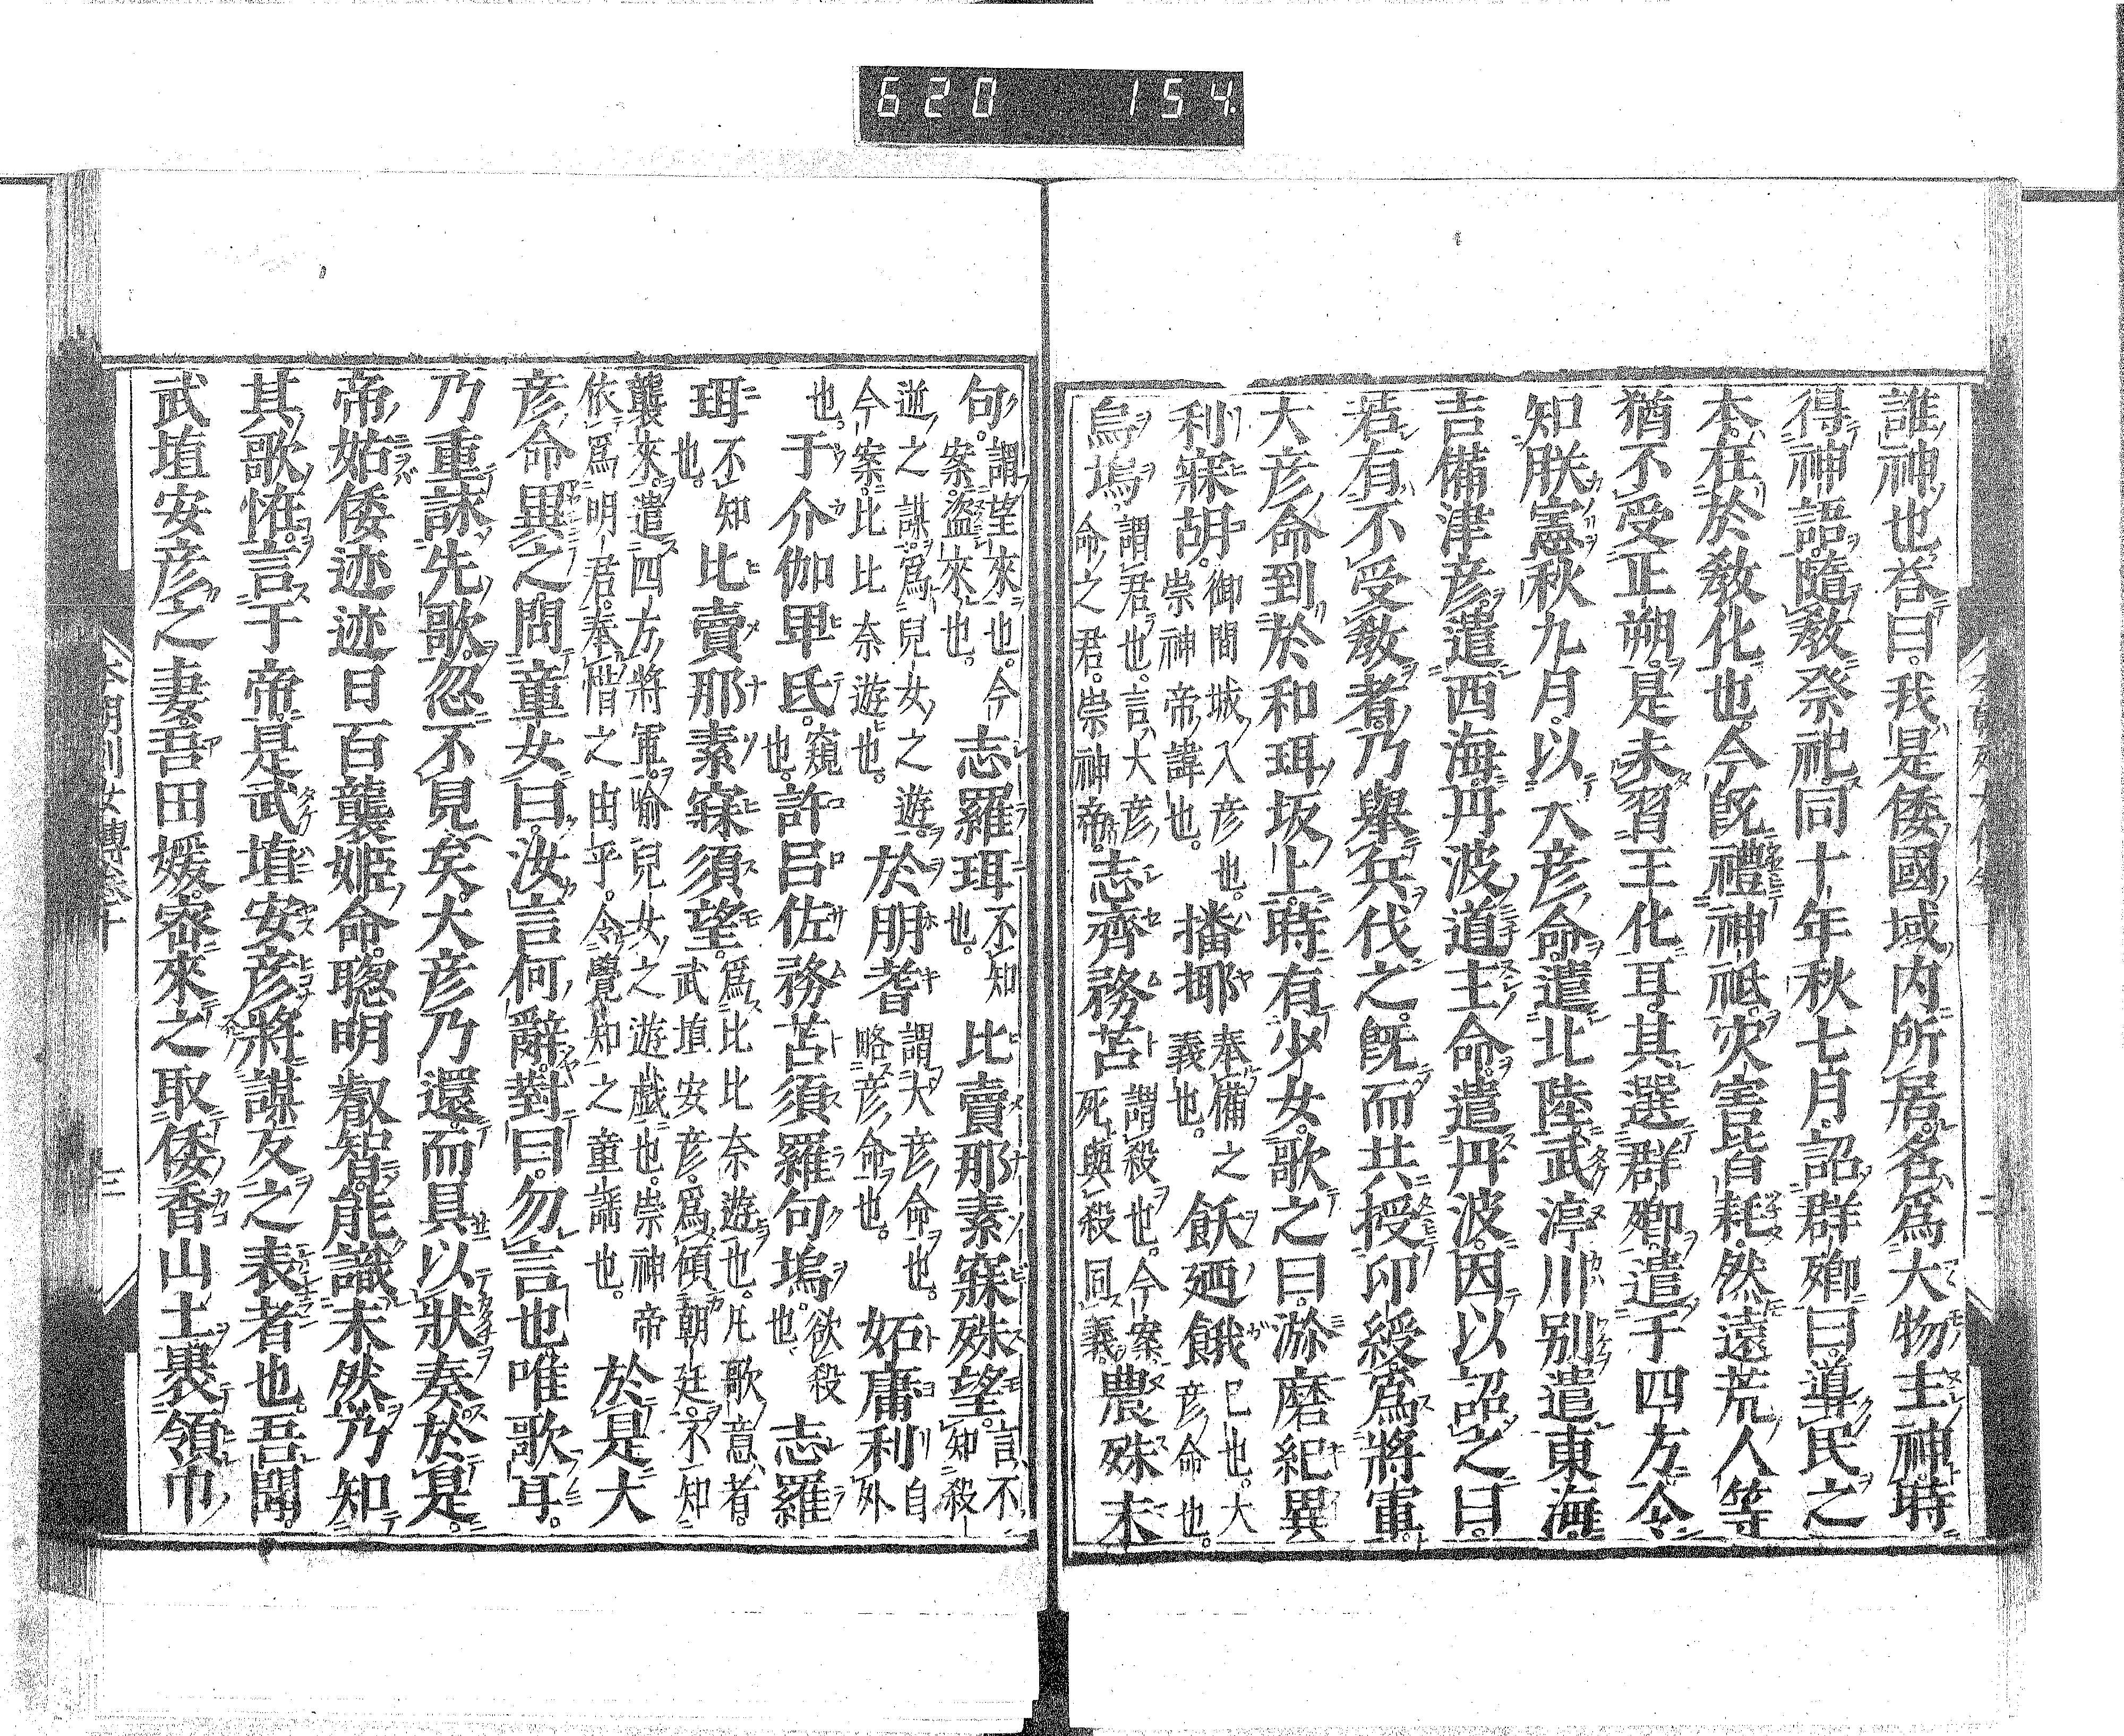 620 154.
誰神也荅曰。我是倭國域内所居名爲大物主神時
得神語隨敎祭祀同十年秋七月。詔群卿曰。導民之
本。在於敎化也今既禮神祗灾害皆耗。然遠荒人等
猶不受正朔。是未習王化耳。其選群卿遣于四方令
知朕憲秋九月。以大彦命遣北陸武渟川别遣東海
吉備津彦遣西海。丹波道主命。遣丹波。因以詔之曰。
若有不受敎者。乃擧兵伐之。既而共授印綬爲將軍。
大彦命到於和珥坂上。時有少女。歌之曰。瀰磨紀異
利寐胡。御間城入彦也。崇神帝諱也。播揶奉備之義也。飫廼餓巳也。大彦命也。
烏塢謂君也。言大彦命之君。崇神帝。志齊務苫謂殺也。今案。死與殺同義。農殊末
句。謂望來也。今案。盜來也。志羅珥不知也。比賣那素寐殊望。言不知殺
逆之謀。爲兒女之遊。今案。比比奈遊也。於朋耆謂大彦命也。略彦命也。妬庸利自外
也。于介伽卑氐。窺也。許呂佐務苫須羅句塢欲殺也。志羅
珥不知也。比賣那素寐須望。爲比比奈遊也。凡歌意者。武埴安彦。爲傾朝廷。不知
襲來。遣四方將軍。喻兒女之遊戯也。崇神帝依爲明君。奉惜之由乎。令覺知之童謡也。於是大
彦命異之問童女曰。汝言何辭。對曰。勿言也唯歌耳。
乃重詠先歌。忽不見矣。大彦乃還。而具以狀奏於是。
帝姑倭迹迹日百襲姬命。聰明叡智。能識未然乃知
其歌恠。言于帝。是武埴安彦將謀反之表者也。吾聞。
武埴安彦之妻吾田媛。密來之取倭香山土。裹領巾
二
三